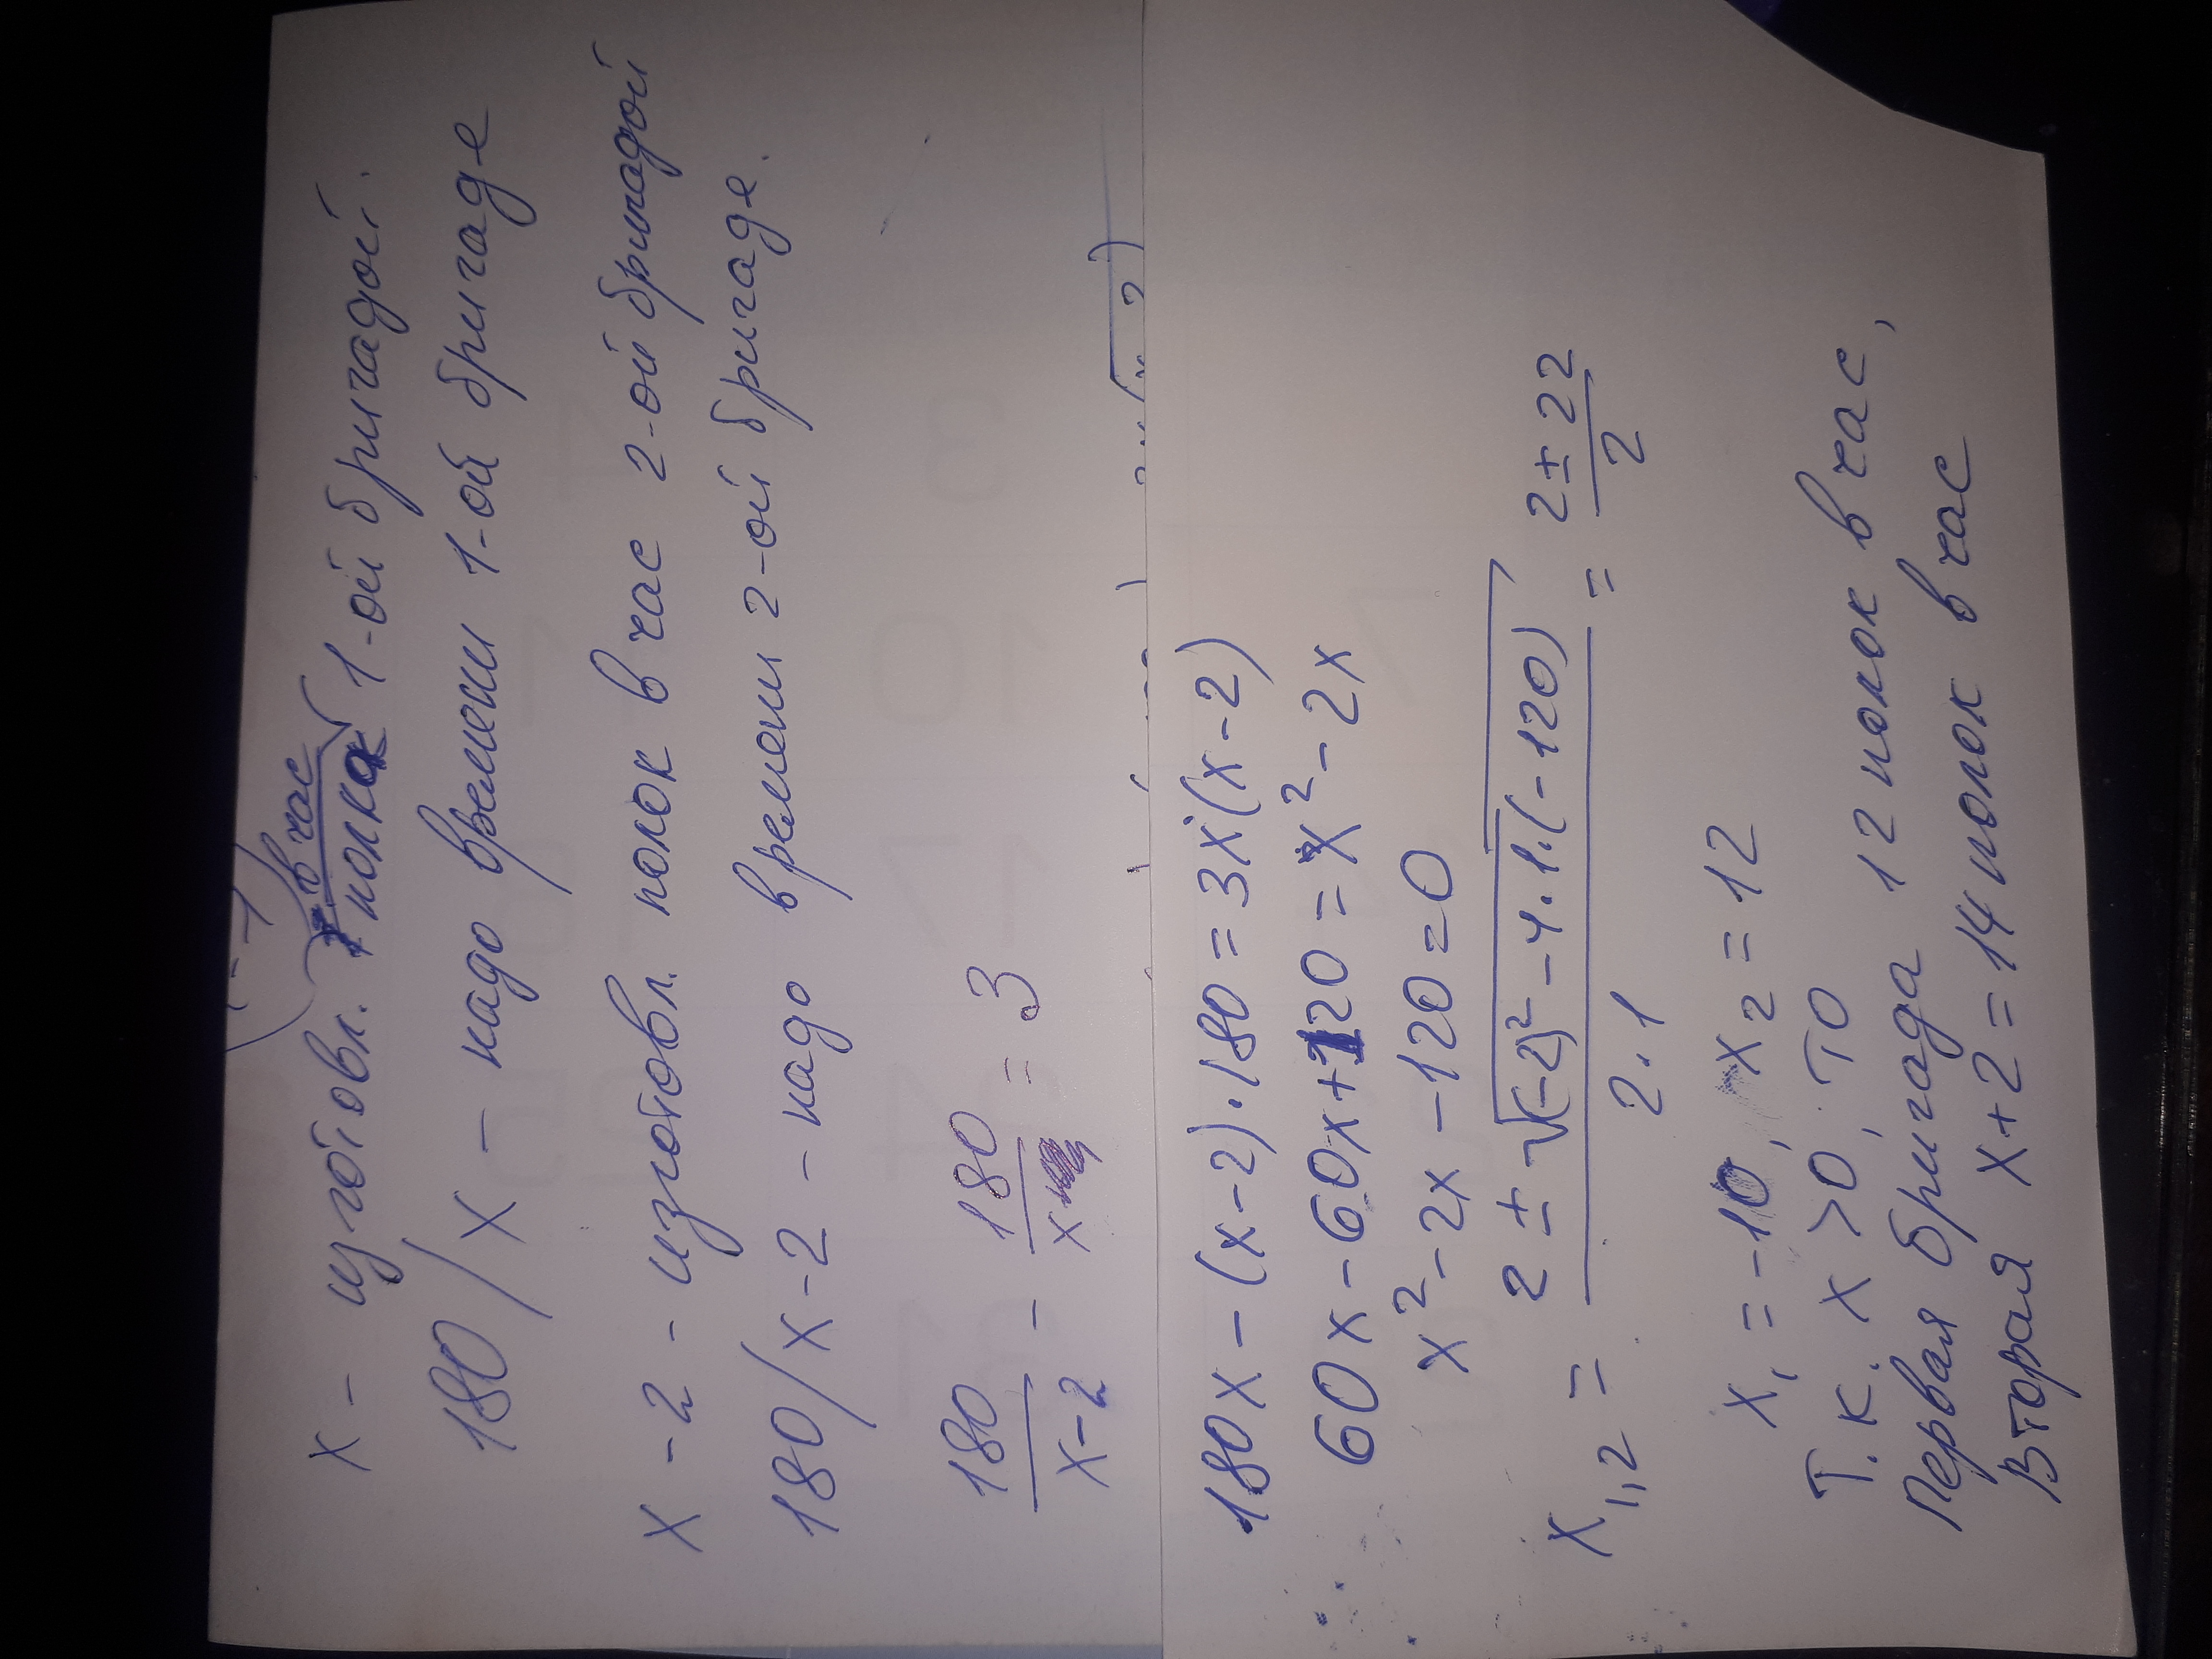 x - изготовл. полка в час 1-ой бригадой.
180/x - надо времени 1-ой бригаде
x - 2 - изготовл. полок в час 2-ой бригадой
180/x-2 - надо времени 2-ой бригаде.
180/x-2 - 180/x = 3
180x - (x-2)·180 = 3x(x-2)
60x - 60x + 120 = x² - 2x
x² - 2x - 120 = 0
x₁,₂ = 2 ± √(-2)² - 4·1·(-120) / 2·1 = 2 ± 22 / 2
x₁ = -10, x₂ = 12
Т.к. x > 0, то
Первая бригада 12 полок в час,
Вторая x+2 = 14 полок в час